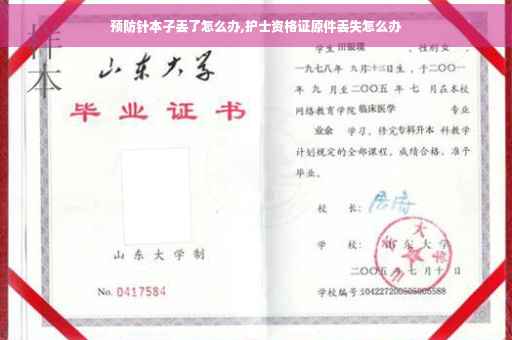 预防针本子丢了怎么办,护士资格证原件丢失怎么办
样本
山东大学
毕业证书
山东大学制
No. 0417584
学生 田银瑞 ,性别女 ,
一九七八年 九月十三日生,于二〇〇一
年 九 月至二〇〇五 年 七 月在本校
网络教育学院 临床医学 专业
业余 学习,修完专科升本 科教学
计划规定的全部课程,成绩合格,准予
毕业。
校 长:
学 校: 山东大学
二〇〇五 年 七 月 十 日
学校编号:104227200505005588